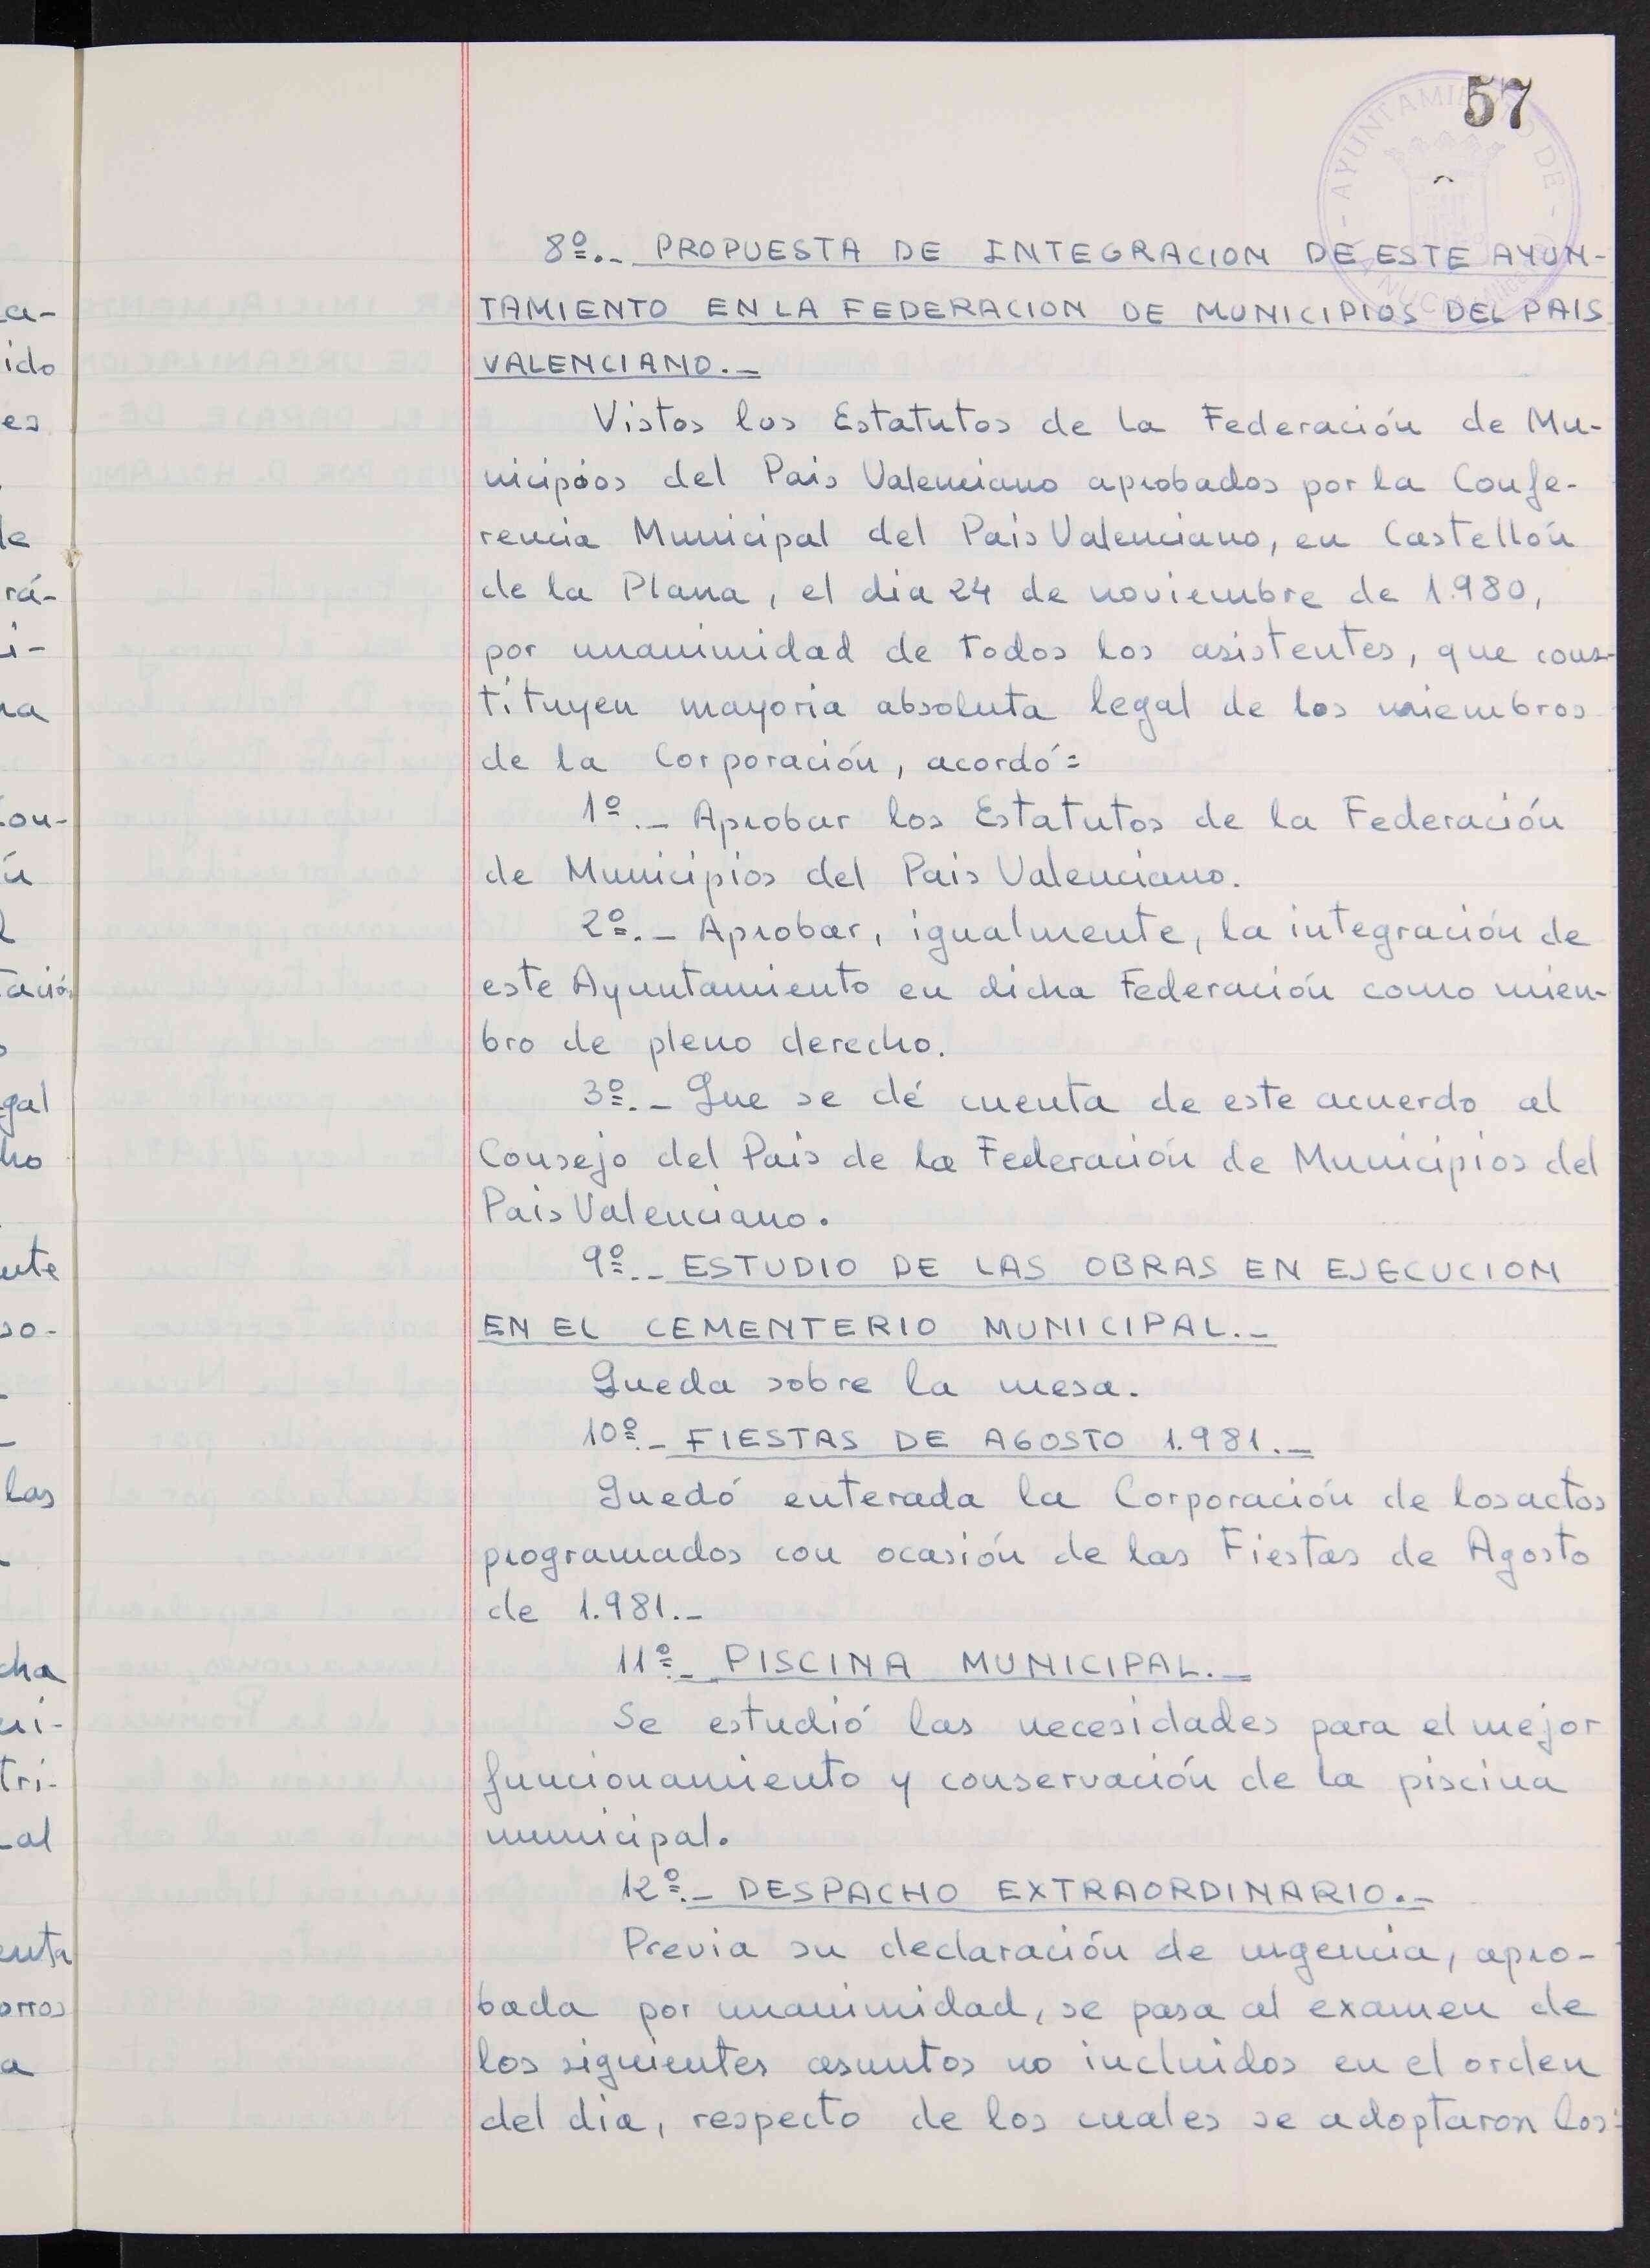 57
AYUNTAMIENTO DE
NUCIA
8º.- PROPUESTA DE INTEGRACION DE ESTE AYUN-
TAMIENTO EN LA FEDERACION DE MUNICIPIOS DEL PAIS
VALENCIANO.-
Vistos los Estatutos de la Federación de Mu-
nicipios del Pais Valenciano aprobados por la Confe-
rencia Municipal del Pais Valenciano, en Castellón
de la Plana, el dia 24 de noviembre de 1.980,
por unanimidad de todos los asistentes, que cons-
tituyen mayoria absoluta legal de los miembros
de la Corporación, acordó:
1º.- Aprobar los Estatutos de la Federación
de Municipios del Pais Valenciano.
2º.- Aprobar, igualmente, la integración de
este Ayuntamiento en dicha Federación como miem-
bro de pleno derecho.
3º.- Que se dé cuenta de este acuerdo al
Consejo del Pais de la Federación de Municipios del
Pais Valenciano.
9º.- ESTUDIO DE LAS OBRAS EN EJECUCION
EN EL CEMENTERIO MUNICIPAL.-
Queda sobre la mesa.
10º.- FIESTAS DE AGOSTO 1.981.-
Quedó enterada la Corporación de los actos
programados con ocasión de las Fiestas de Agosto
de 1.981.-
11º.- PISCINA MUNICIPAL.-
Se estudió las necesidades para el mejor
funcionamiento y conservación de la piscina
municipal.
12º.- DESPACHO EXTRAORDINARIO.-
Previa su declaración de urgencia, apro-
bada por unanimidad, se pasa al examen de
los siguientes asuntos no incluidos en el orden
del dia, respecto de los cuales se adoptaron los: